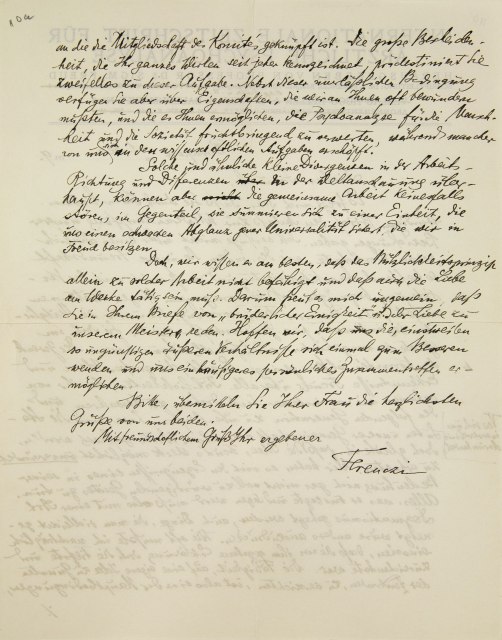 an die die Mitgliedschaft des Komités geknüpft ist. Die große Bescheiden-
heit, die Ihr ganzes Wirken seit jeher kennzeichnet, prädestiniert Sie
zweifellos zu dieser Aufgabe. Nebst dieser unerlässlichen Bedingung
verfügen Sie aber über Eigenschaften, die wir an Ihnen oft bewundern
mußten, und die es Ihnen ermöglichen, die Psychoanalyse für die Mensch-
heit und die Sozietät fruchtbringend zu verwerten, während mancher
von uns in den wissenschaftlichen Aufgaben erschöpft.
Solche und ähnliche kleine Divergenzen in der Arbeits-
Richtung und Differenzen in der Weltanschauung über-
haupt, können aber die gemeinsame Arbeit keinesfalls
stören, im Gegenteil, sie summieren sich zu einer Einheit, die
uns einen Abglanz jener Universalität sichert, die wir in
Freud besitzen.
Doch, wir wissen es am besten, daß das Nützlichkeitsprinzip
allein zu solcher Arbeit nicht befähigt und daß auch die Liebe
am Werke tätig sein muß. Darum freut es mich ungemein, daß
Sie in Ihrem Briefe von "brüderlicher Einigkeit und der Liebe zu
unserem Meister" reden. Hoffen wir, daß die einstweilen
so ungünstigen äußeren Verhältnisse sich einmal zum Besseren
wenden und uns ein häufigeres persönliches Zusammentreffen er-
möglichen
Bitte, übermitteln Sie Ihrer Frau die herzlichsten
Grüße von uns beiden.
Mit freundschaftlichem Gruß Ihr ergebener
Ferenczi